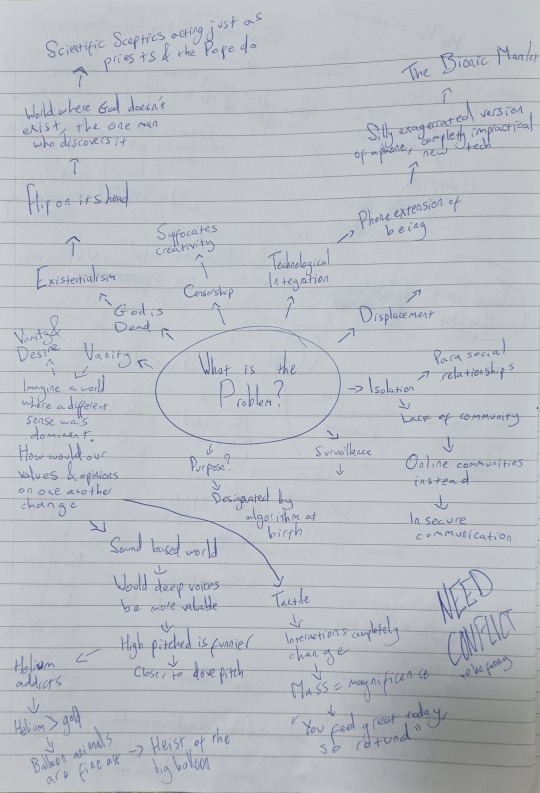 Scientific Sceptics acting just as
priests & the Pope do
The Bionic Man
World where God doesn't
exist, the one man
who discovers it
Silly exagerrated version
of a phone, completly impractical
new tech
Flip on its head
Phone extension of
being
Suffocates
creativity
Technological
Integration
Existentialism
Censorship
God is
Dead
Displacement
Vanity &
Desire
Vanity
What is the
Problem?
Para social
relationships
Isolation
Imagine a world
where a different
sense was
dominant.
How would our
values & opinions
on one another
change
Lack of community
Purpose?
Survillence
Online communities
instead
Designated by
algorism at
birth
Insecure
communication
Sound based world
Would deep voices
be more valuable
Tactile
NEED
CONFLICT
to be funny
High pitched is funnier
Interactions completely
change
Closer to dove pitch
Helium
addicts
Mass = magnificence
Helium > gold
"You feel great today,
so rotund"
Balloon animals
are fine art
Heist of the
big balloon